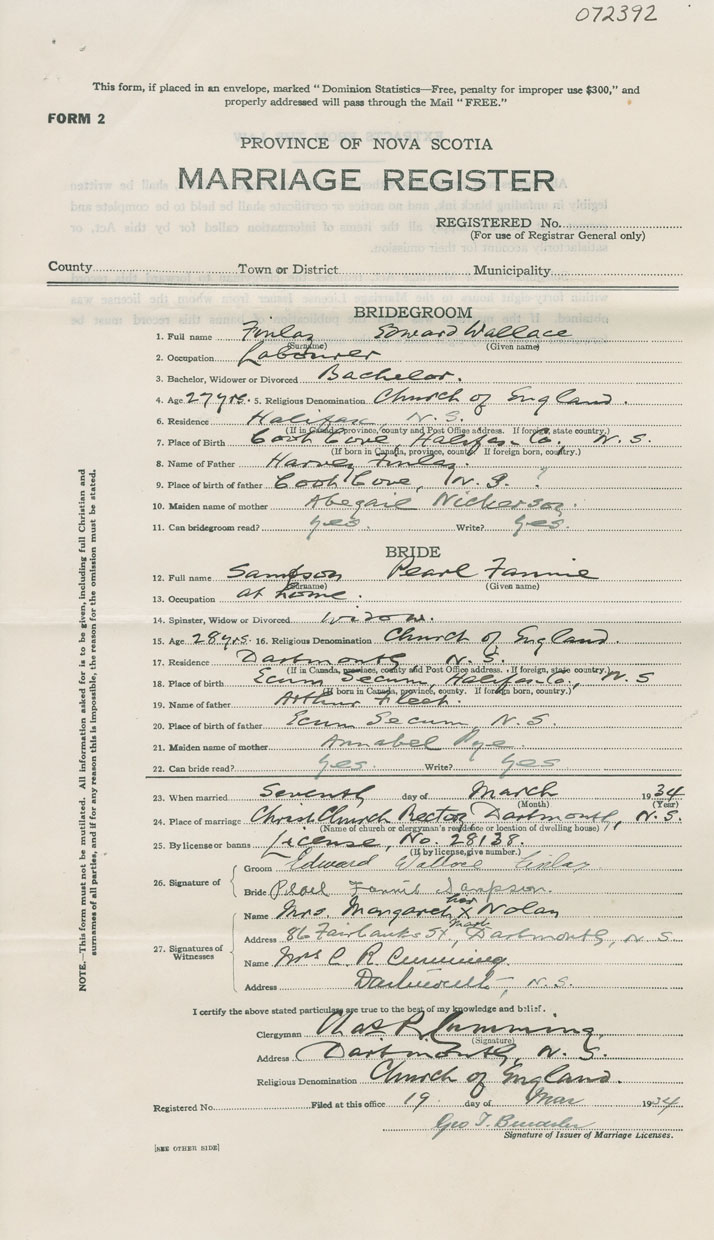 072392
This form, if placed in an envelope, marked "Dominion Statistics—Free, penalty for improper use $300," and
properly addressed will pass through the Mail "FREE."
FORM 2
PROVINCE OF NOVA SCOTIA
MARRIAGE REGISTER
REGISTERED No.
(For use of Registrar General only)
County Town or District Municipality
BRIDEGROOM
1. Full name Finlay Edward Wallace
(Surname) (Given name)
2. Occupation Labourer
3. Bachelor, Widower or Divorced Bachelor.
4. Age 27 yrs. 5. Religious Denomination Church of England.
6. Residence Halifax, N.S.
(If in Canada, province, county and Post Office address. If foreign, state country.)
7. Place of Birth Cove, Halifax Co., N.S.
(If born in Canada, province, county. If foreign born, country.)
8. Name of Father Harvey Finlay.
9. Place of birth of father Cove, N.S. ?
10. Maiden name of mother Abegail Nickerson.
11. Can bridegroom read? yes. Write? yes.
BRIDE
12. Full name Sampson Pearl Fannie
(Surname) (Given name)
13. Occupation at home.
14. Spinster, Widow or Divorced Widow.
15. Age 28 yrs. 16. Religious Denomination Church of England.
17. Residence Dartmouth N.S.
(If in Canada, province, county and Post Office address. If foreign, state country.)
18. Place of birth Ecum Secum, Halifax Co., N.S
(If born in Canada, province, county. If foreign born, country.)
19. Name of father Arthur Fleet.
20. Place of birth of father Ecum Secum, N.S.
21. Maiden name of mother Annabel Pye.
22. Can bride read? yes. Write? yes
23. When married Seventh day of March 1934
(Month) (Year)
24. Place of marriage Christ Church Rectory, Dartmouth, N.S.
(Name of church or clergyman's residence or location of dwelling house)
25. By license or banns License, No. 28138.
(If by license, give number.)
26. Signature of
Groom Edward Wallace Finlay
Bride Pearl Fannie Sampson.
27. Signatures of Witnesses
Name Mrs. Margaret her X mark Nolan
Address 86 Fairbanks St., Dartmouth, N S.
Name Mrs C. R. Cumming.
Address Dartmouth, N.S.
I certify the above stated particulars are true to the best of my knowledge and belief.
Clergyman Chas R Cumming,
(Signature)
Address Dartmouth, N.S.
Religious Denomination Church of England.
Registered No. Filed at this office 19 day of Mar 1934
Geo T.
Signature of Issuer of Marriage Licenses.
[SEE OTHER SIDE]
NOTE.—This form must not be mutilated. All information asked for is to be given, including full Christian and
surnames of all parties, and if for any reason this is impossible, the reason for the omission must be stated.